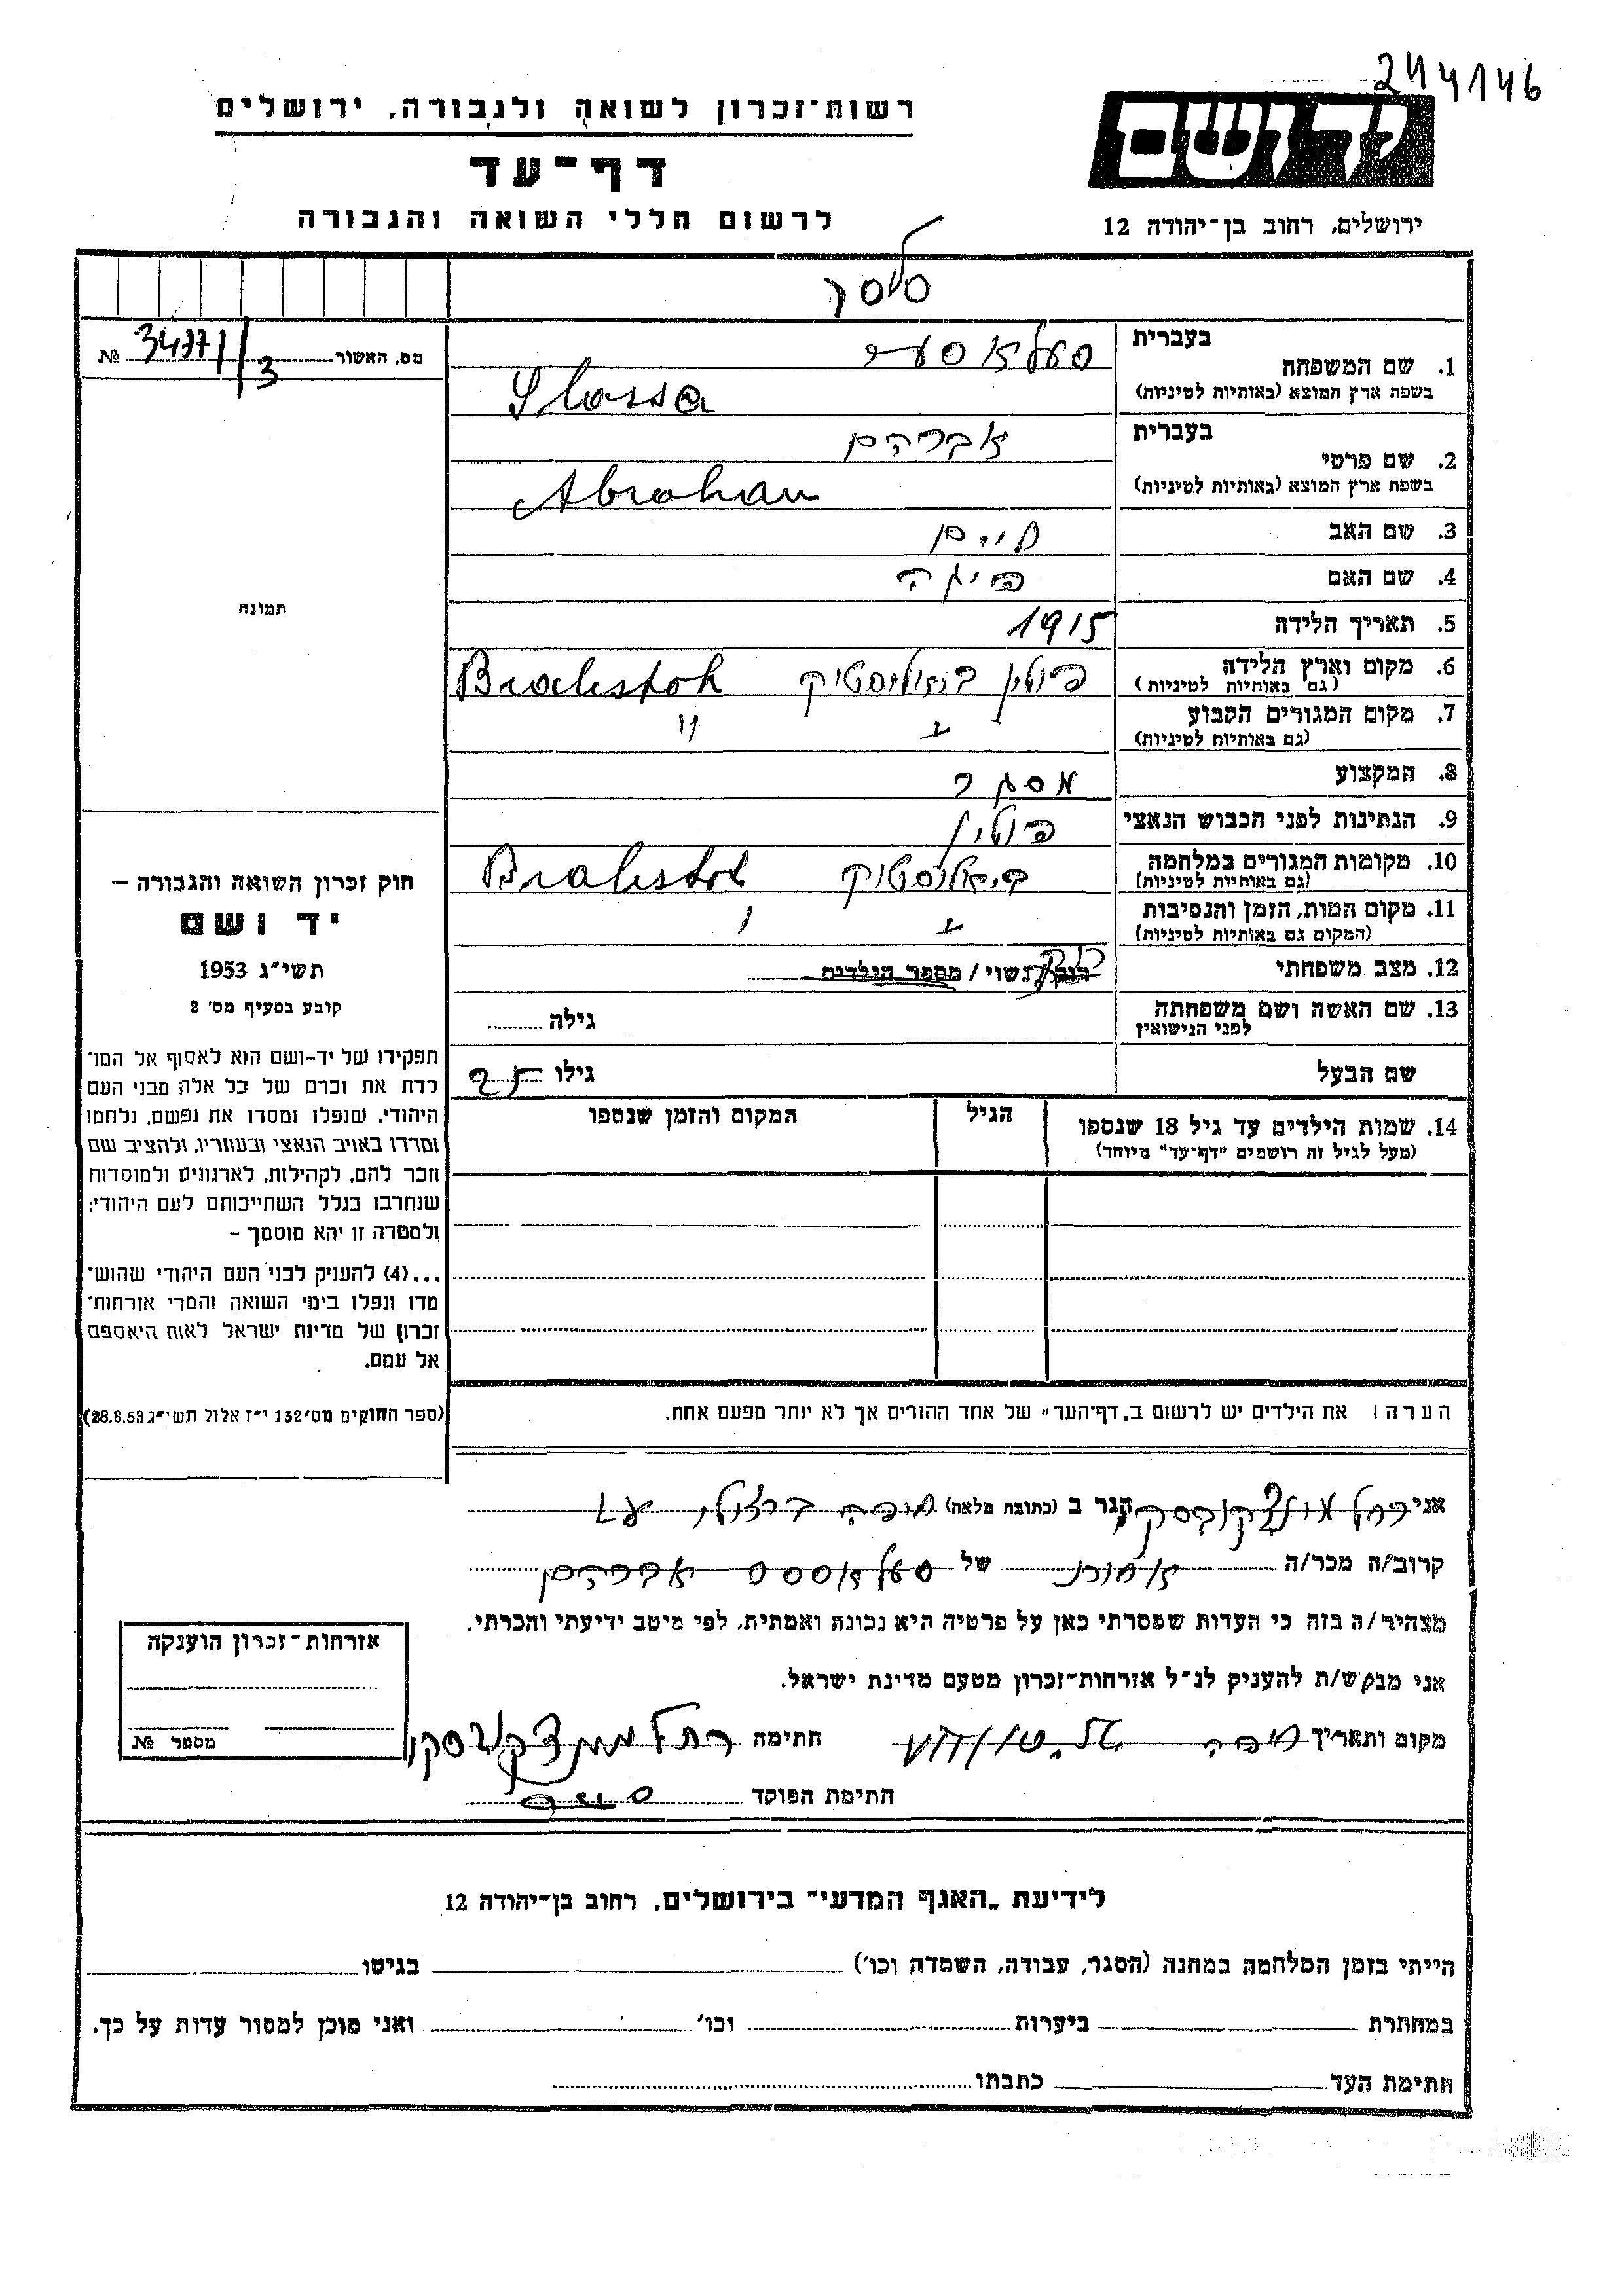 244146
רשות־זכרון לשואה ולגבורה, ירושלים
דף־עד
לרשום חללי השואה והגבורה
יד ושם
ירושלים, רחוב בן־יהודה 12
מס. האשור 34771/3 №
בעברית
1. שם המשפחה
בשפת ארץ המוצא (באותיות לטיניות) Slassa
בעברית אברהם
2. שם פרטי
בשפת ארץ המוצא (באותיות לטיניות) Abraham
3. שם האב חיים
4. שם האם פיגה
5. תאריך הלידה 1915
6. מקום וארץ הלידה פולין ביאליסטוק
(גם באותיות לטיניות)
7. מקום המגורים הקבוע " "
(גם באותיות לטיניות)
8. המקצוע מסגר
9. הנתינות לפני הכבוש הנאצי פולין
10. מקומות המגורים במלחמה ביאליסטוק
(גם באותיות לטיניות)
11. מקום המות, הזמן והנסיבות
(המקום גם באותיות לטיניות)
12. מצב משפחתי רווק/נשוי/מספר הילדים
13. שם האשה ושם משפחתה גילה
לפני הנישואין
שם הבעל גילו 25
14. שמות הילדים עד גיל 18 שנספו הגיל המקום והזמן שנספו
(מעל לגיל זה רושמים "דף־עד" מיוחד)
תמונה
חוק זכרון השואה והגבורה –
יד ושם
תשי"ג 1953
קובע בסעיף מס' 2
תפקידו של יד-ושם הוא לאסוף אל המו־
לדת את זכרם של כל אלה מבני העם
היהודי, שנפלו ומסרו את נפשם, נלחמו
ומרדו באויב הנאצי ובעוזריו, ולהציב שם
וזכר להם, לקהילות, לארגונים ולמוסדות
שנחרבו בגלל השתייכותם לעם היהודי;
ולמטרה זו יהא מוסמך –
...(4) להעניק לבני העם היהודי שהוש־
מדו ונפלו בימי השואה והמרי אזרחות־
זכרון של מדינת ישראל לאות היאספם
אל עמם.
(ספר החוקים מס' 132 י"ז אלול תשי"ג 28.8.53)
הערה: את הילדים יש לרשום ב"דף־העד" של אחד ההורים אך לא יותר מפעם אחת.
אני רחל הגר ב (כתובת מלאה) חיפה
קרוב/ה מכר/ה אחות של אברהם
מצהיר/ה בזה כי העדות שמסרתי כאן על פרטיה היא נכונה ואמתית, לפי מיטב ידיעתי והכרתי.
אני מבקש/ת להעניק לנ"ל אזרחות־זכרון מטעם מדינת ישראל.
מקום ותאריך חיפה חתימה רחל
חתימת הפוקד
אזרחות־זכרון הוענקה
מספר №
לידיעת "האגף המדעי" בירושלים, רחוב בן־יהודה 12
הייתי בזמן המלחמה במחנה (הסגר, עבודה, השמדה וכו') בגיטו
במחתרת ביערות וכו' ואני מוכן למסור עדות על כך.
חתימת העד כתבתו